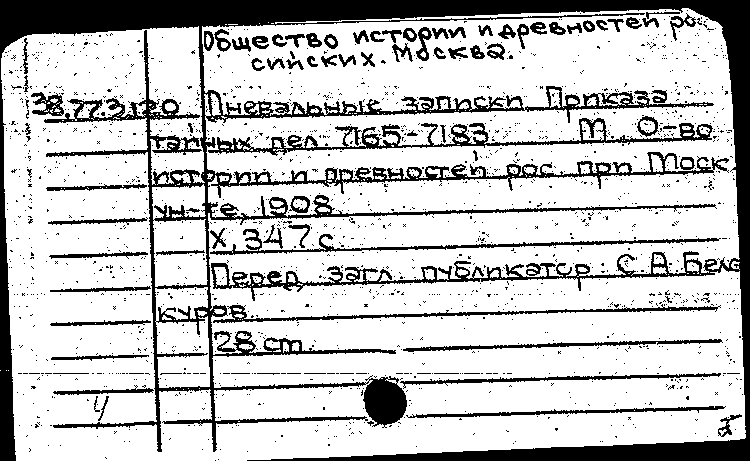 Общество истории и древностей рос
сийских. Москва.
38.77.3.120 Дневальные записки Приказа
тайных дел. 7165-7183. М., О-во
истории и древностей рос. при Моск.
ун-те, 1908.
X, 347 с.
Перед загл. публикатор: С.А. Бело
куров.
28 cm.
4